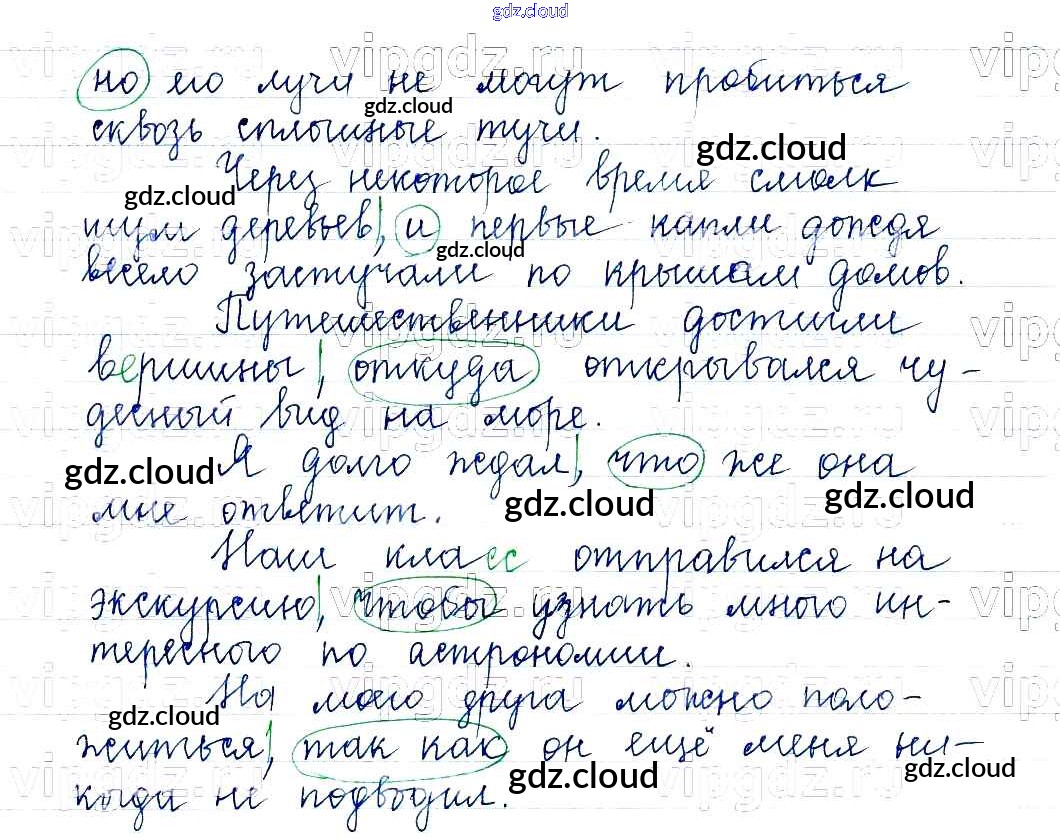 gdz.cloud
но его лучи не могут пробиться
сквозь сплошные тучи.
Через некоторое время смолк
шум деревьев, и первые капли дождя
весело застучали по крышам домов.
Путешественники достигли
вершины, откуда открывался чу-
десный вид на море.
Я долго ждал, что же она
мне ответит.
Наш класс отправился на
экскурсию, чтобы узнать много ин-
тересного по астрономии.
На моего друга можно поло-
житься, так как он ещё меня ни-
когда не подводил.